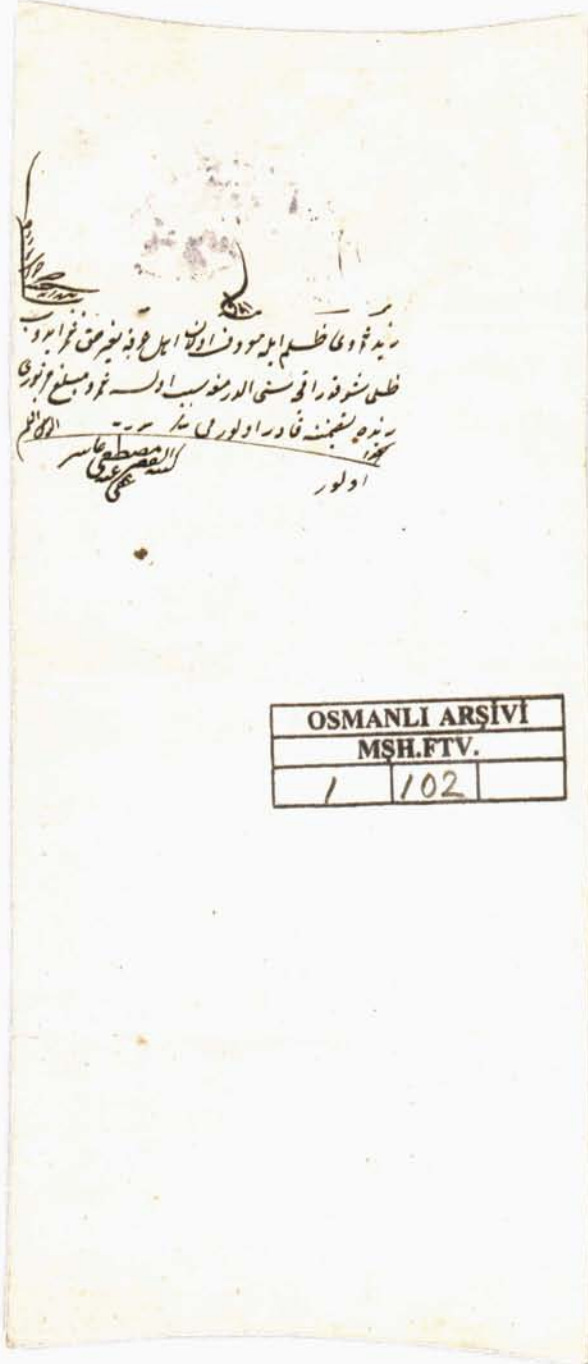 زيد عمروی ظلم ايله معروف اولان اهل عرفه بغير حق غمز ايدوب
ظلمی شو قدر اقچه سنی الدرمغه سبب اولسه عمرو مبلغ مزبوری
زيده تضمينه قادر اولورمی
الله اعلم
اولور
كتبه الفقير مصطفى عاشر
عفی عنه
OSMANLI ARŞİVİ
MŞH.FTV.
1 102